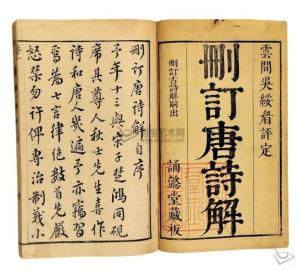 雲間吳綏眉評定
刪訂唐詩解
刪訂古詩解嗣出
誦懿堂藏板
刪訂唐詩解自序
予年十三與宋子楚鴻同硯
席其尊人秋士先生喜作
詩和唐人幾遍予亦竊習
焉為七言律絶數首先嚴
怒禁勿許俾専治制義小